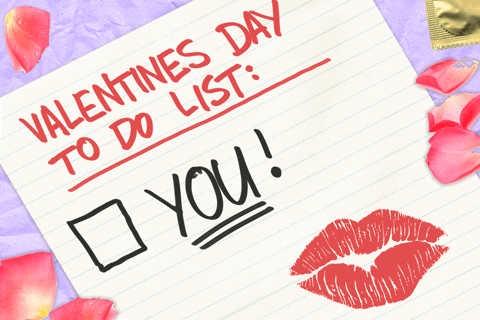 VALENTINES DAY
TO DO LIST:
YOU!